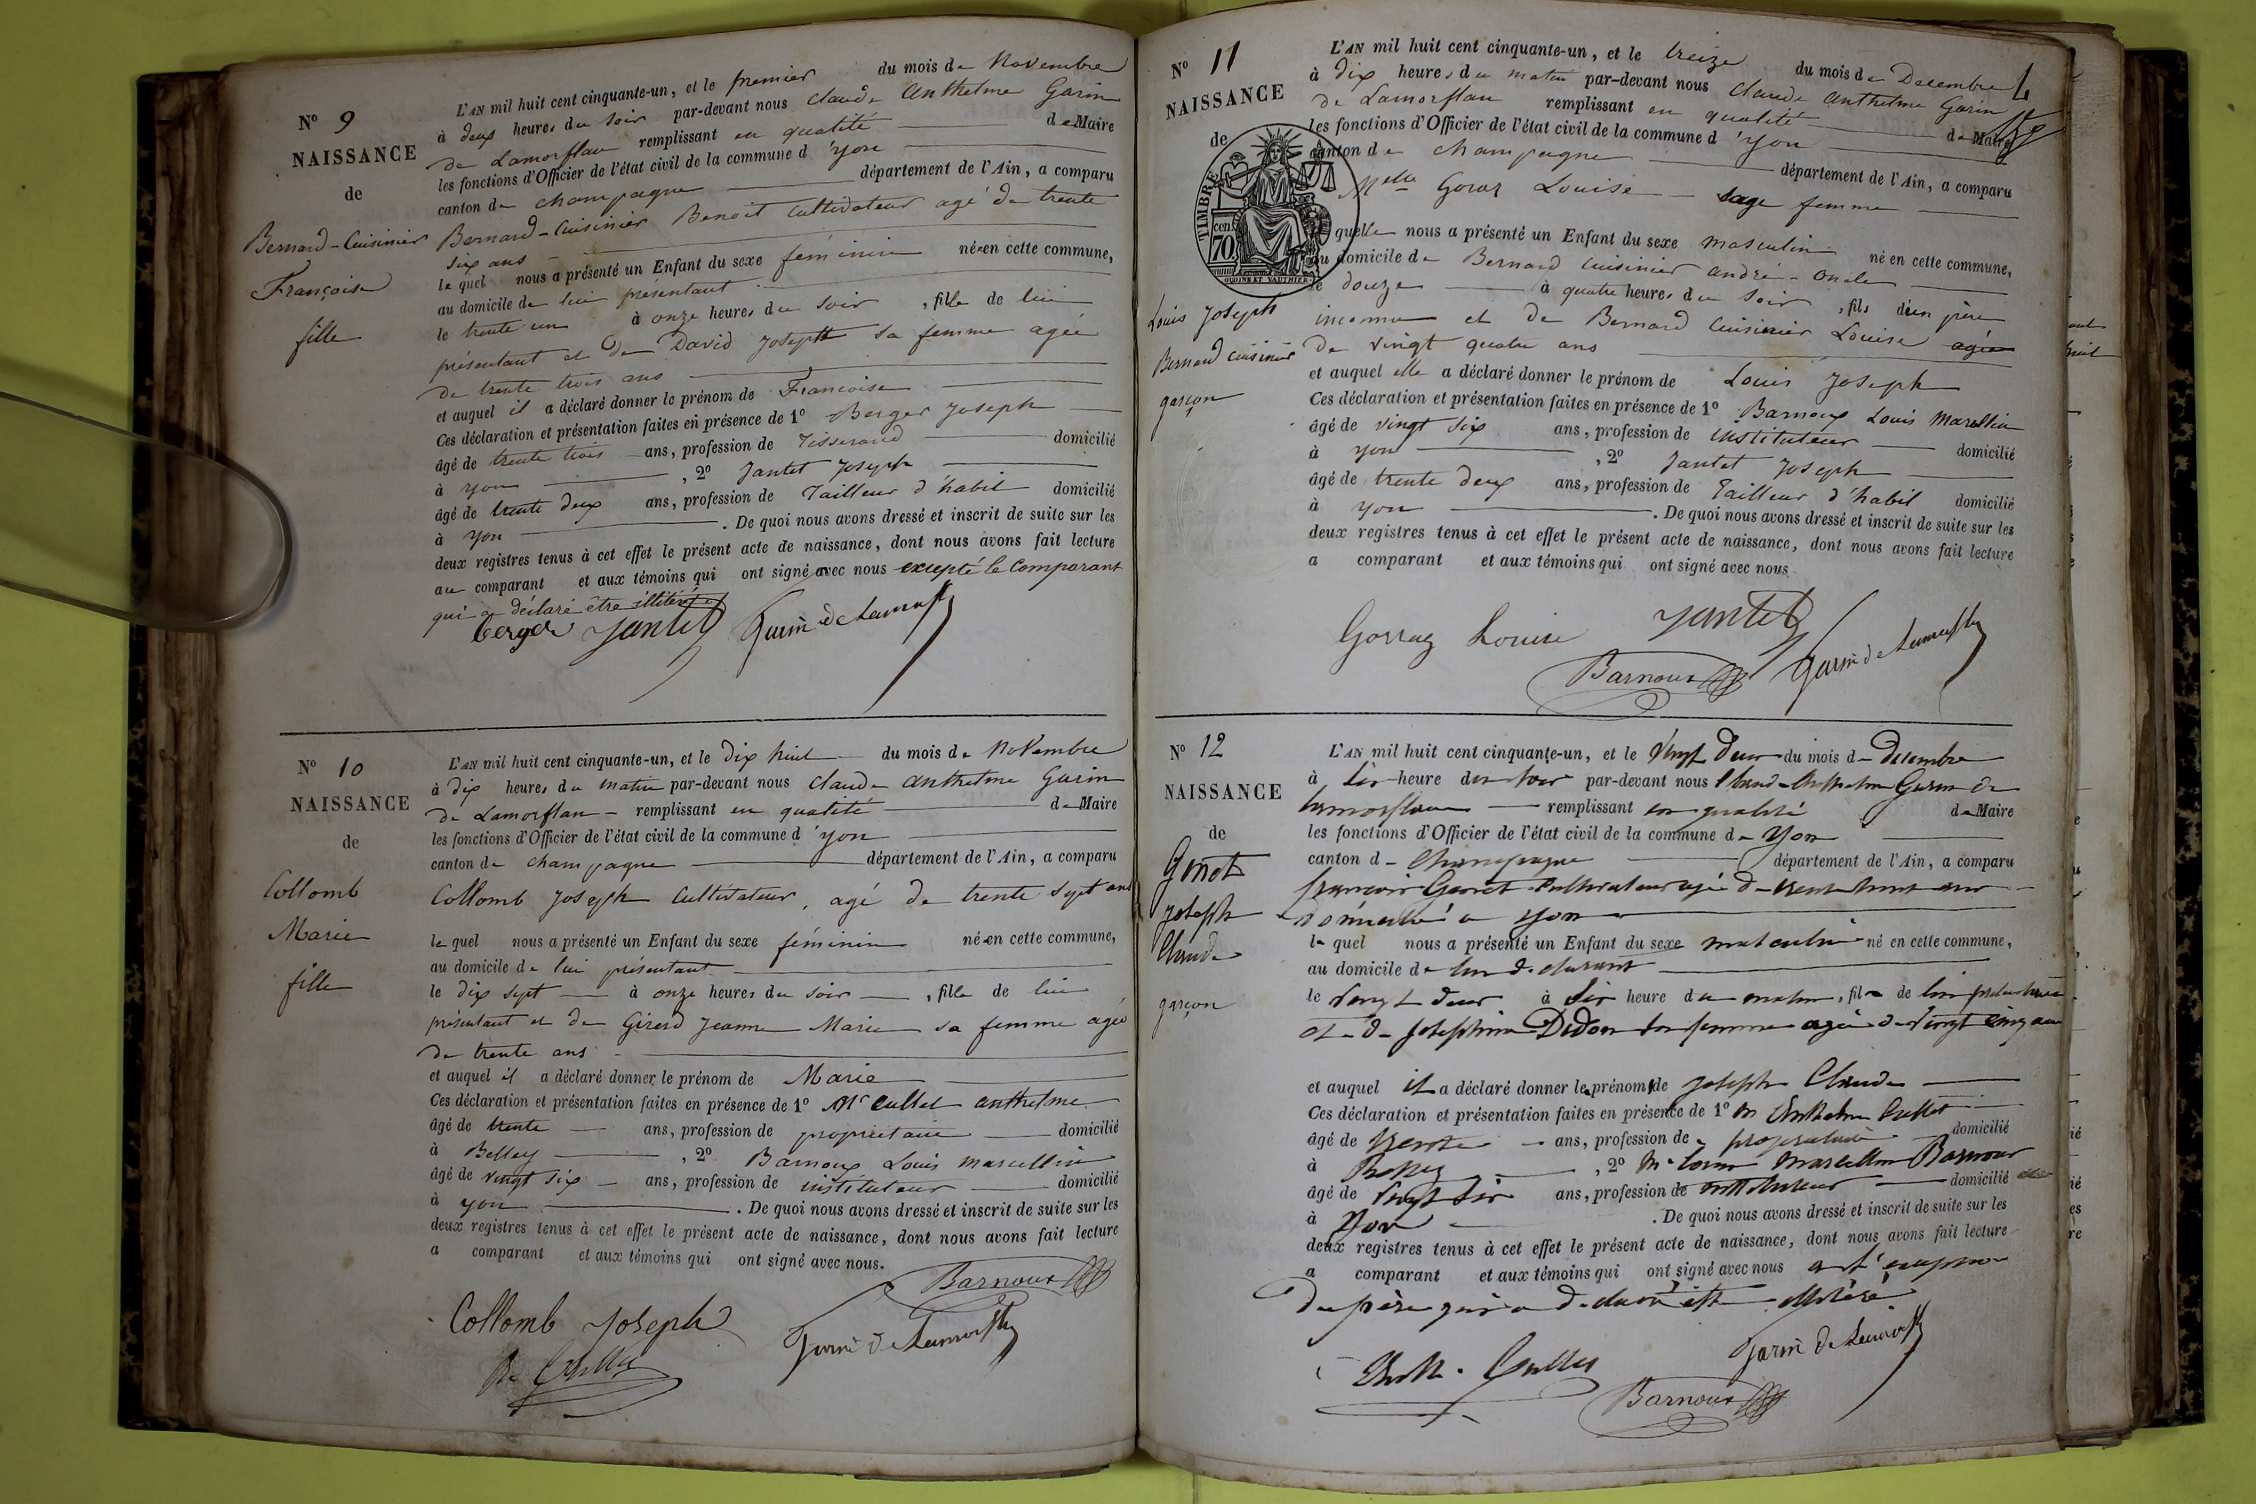 N° 9
NAISSANCE
de
Bernard-Cuisinier
Françoise
fille
L'AN mil huit cent cinquante-un, et le premier du mois de Novembre
à deux heures du soir par-devant nous claude Anthelme Garin
de Lamorflan remplissant en qualité de Maire
les fonctions d'Officier de l'état civil de la commune d'yon
canton de champagne département de l'Ain, a comparu
Bernard-Cuisinier Benoit Cultivateur agé de trente
six ans
le quel nous a présenté un Enfant du sexe féminin né en cette commune,
au domicile de lui présentant
le trente un à onze heures du soir, fille de lui
présentant et de David Joseph sa femme agée
de trente trois ans
et auquel il a déclaré donner le prénom de Francoise
Ces déclaration et présentation faites en présence de 1° Berger Joseph
âgé de trente trois ans, profession de Tisserand domicilié
à yon, 2° Jantet Joseph
âgé de trente deux ans, profession de Tailleur d'habit domicilié
à yon. De quoi nous avons dressé et inscrit de suite sur les
deux registres tenus à cet effet le présent acte de naissance, dont nous avons fait lecture
au comparant et aux témoins qui ont signé avec nous excepté le comparant
qui a déclaré être illitéré
berger Jantet Garin de Lamorfl
N° 10
NAISSANCE
de
Collomb
Marie
fille
L'AN mil huit cent cinquante-un, et le dix huit du mois de Novembre
à dix heures du matin par-devant nous claude anthelme Garin
de Lamorflan remplissant en qualité de Maire
les fonctions d'Officier de l'état civil de la commune d'yon
canton de champagne département de l'Ain, a comparu
Collomb Joseph Cultivateur, agé de trente sept ans
le quel nous a présenté un Enfant du sexe féminin né en cette commune,
au domicile de lui présentant
le dix sept à onze heures du soir, fille de lui
présentant et de Girerd Jeanne Marie sa femme agée
de trente ans
et auquel il a déclaré donner le prénom de Marie
Ces déclaration et présentation faites en présence de 1° Mr Cullet anthelme
âgé de trente ans, profession de propriétaire domicilié
à Belley, 2° Barnoux Louis marcellin
âgé de vingt six ans, profession de instituteur domicilié
à yon. De quoi nous avons dressé et inscrit de suite sur les
deux registres tenus à cet effet le présent acte de naissance, dont nous avons fait lecture
a comparant et aux témoins qui ont signé avec nous.
Barnoux
Collomb Joseph Garin de Lamorfl
N° 11
NAISSANCE
de
TIMBRE
cen
70
OUDINE ET VAUTHIER
Louis Joseph
Bernard cuisinier
garçon
L'AN mil huit cent cinquante-un, et le treize du mois de Decembre
à dix heures du matin par-devant nous claude anthelme Garin
de Lamorflan remplissant en qualité de Maire
les fonctions d'Officier de l'état civil de la commune d'yon
canton de champagne département de l'Ain, a comparu
Melle Goraz Louise sage femme
quelle nous a présenté un Enfant du sexe masculin né en cette commune,
au domicile de Bernard Cuisinier andré oncle
le douze à quatre heures du soir, fils d'un père
inconnu et de Bernard Cuisinier Louise agée
de vingt quatre ans
et auquel elle a déclaré donner le prénom de Louis Joseph
Ces déclaration et présentation faites en présence de 1° Barnoux Louis Marcellin
âgé de vingt six ans, profession de instituteur domicilié
à yon, 2° Jantet Joseph
âgé de trente deux ans, profession de Tailleur d'habit domicilié
à yon. De quoi nous avons dressé et inscrit de suite sur les
deux registres tenus à cet effet le présent acte de naissance, dont nous avons fait lecture
a comparant et aux témoins qui ont signé avec nous
Gorraz Louise Jantet
Barnoux Garin de Lamorfl
N° 12
NAISSANCE
de
Joseph
Claude
garçon
L'AN mil huit cent cinquante-un, et le vingt deux du mois de Decembre
à six heure du soir par-devant nous Claude Anthelme Garin de
lamorflan remplissant en qualité de Maire
les fonctions d'Officier de l'état civil de la commune de Yon
canton d Champagne département de l'Ain, a comparu
françois cultivateur agé de trente huit ans
domicilié a yon
le quel nous a présenté un Enfant du sexe masculin né en cette commune,
au domicile de lui déclarant
le vingt deux à six heure du matin, fils de lui présentant
et de Josephine Didon sa femme agée de vingt cinq ans
et auquel il a déclaré donner le prénom de Joseph Claude
Ces déclaration et présentation faites en présence de 1° Mr Anthelme Cullet
âgé de trente ans, profession de propriétaire domicilié
à Belley, 2° Mr Louis Marcellin Barnoux
âgé de vingt six ans, profession de instituteur domicilié
à Yon. De quoi nous avons dressé et inscrit de suite sur les
deux registres tenus à cet effet le présent acte de naissance, dont nous avons fait lecture
a comparant et aux témoins qui ont signé avec nous a l'exception
du père qui a déclaré être illitéré
Anth. Cullet Garin de Lamorfl
Barnoux